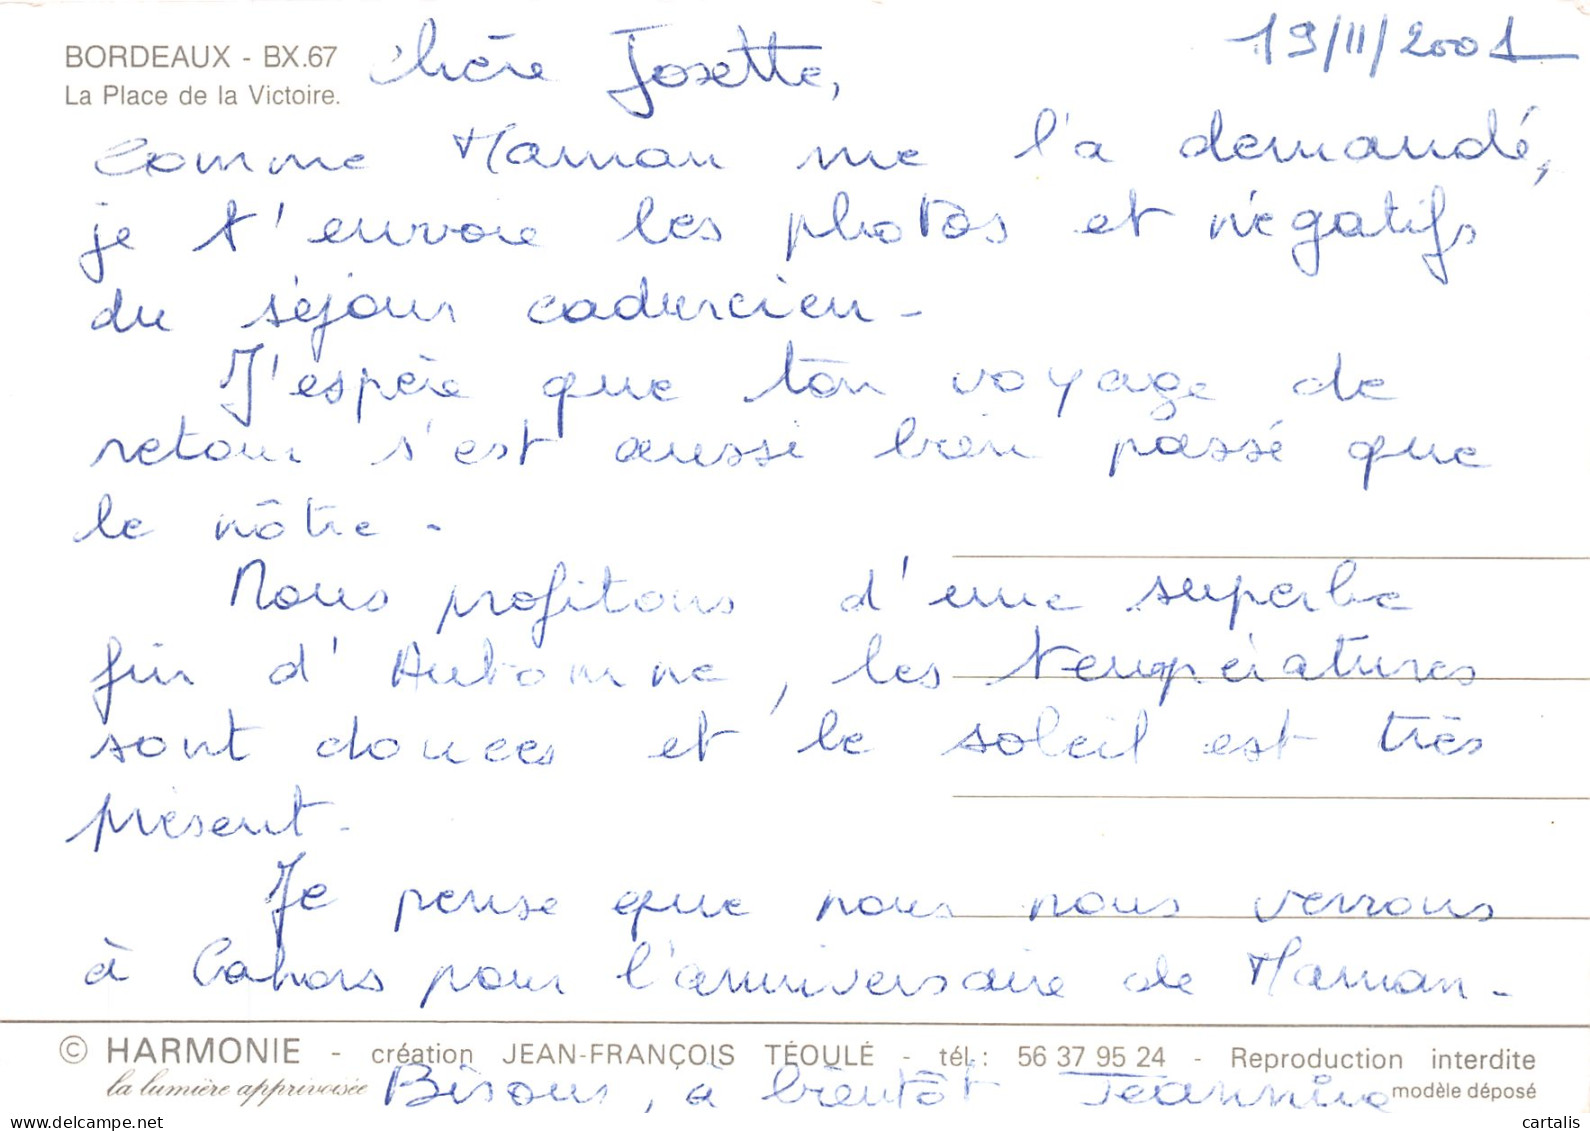 BORDEAUX - BX.67
La Place de la Victoire.
19/11/2001
Chère Josette,
Comme Maman me l'a demandé,
je t'envoie les photos et négatifs
du séjour cadurcien -
J'espère que ton voyage de
retour s'est aussi bien passé que
le nôtre -
Nous profitons d'une superbe
fin d'Automne, les températures
sont douces et le soleil est très
présent -
Je pense que nous nous verrons
à Cahors pour l'anniversaire de Maman -
© HARMONIE - création JEAN-FRANÇOIS TÉOULÉ - tél.: 56 37 95 24 - Reproduction interdite
la lumière apprivoisée
modèle déposé
Bisous, à bientôt Jeannine
cartalis